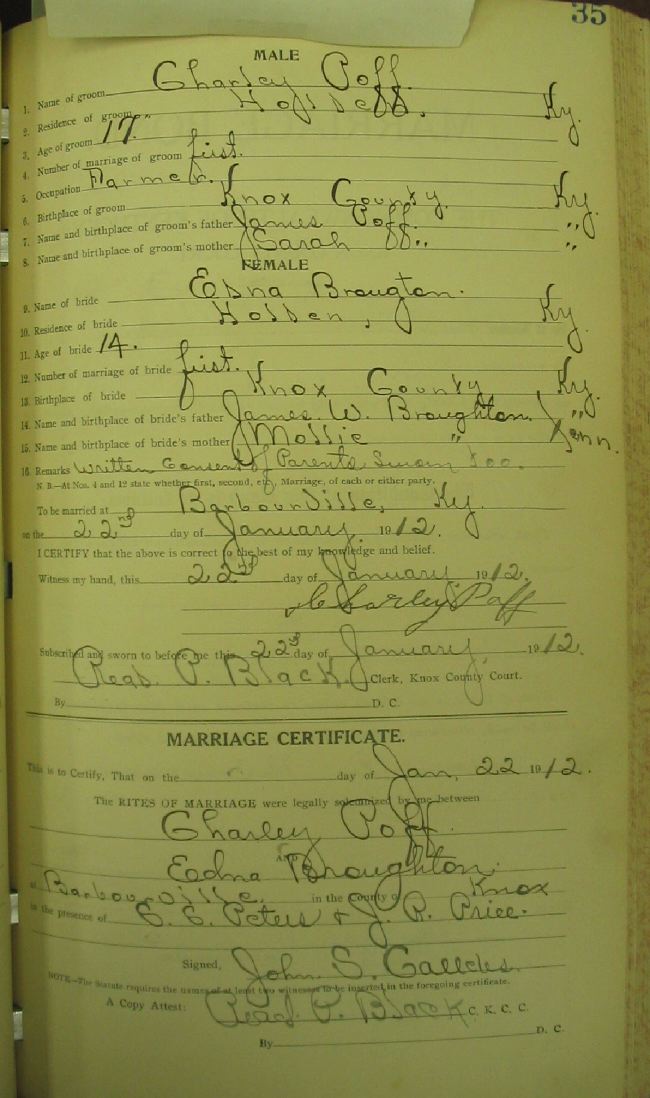 35
MALE
1. Name of groom Charley Poff.
2. Residence of groom Ky.
3. Age of groom 17.
4. Number of marriage of groom first.
5. Occupation Farmer.
6. Birthplace of groom Knox County. Ky.
7. Name and birthplace of groom's father James Poff. "
8. Name and birthplace of groom's mother Sarah " "
FEMALE
9. Name of bride Edna Brougton.
10. Residence of bride Holden, Ky.
11. Age of bride 14.
12. Number of marriage of bride first.
13. Birthplace of bride Knox County Ky.
14. Name and birthplace of bride's father James W. Broughton. "
15. Name and birthplace of bride's mother Mollie " Tenn.
16. Remarks Written Consent of Parents Sworn too.
N. B.—At Nos. 4 and 12 state whether first, second, etc., Marriage, of each or either party.
To be married at Barbourville, Ky.
on the 22nd day of January. 1912.
I CERTIFY that the above is correct to the best of my knowledge and belief.
Witness my hand, this 22nd day of January. 1912.
Charley Poff
Subscribed and sworn to before me this 22d day of January, 1912.
Read. P. Black. Clerk, Knox County Court.
By D. C.
MARRIAGE CERTIFICATE.
This is to Certify, That on the day of Jan, 22 1912.
The RITES OF MARRIAGE were legally solemnized by me between
Charley Poff.
AND
Edna Broughton.
at Barbourville. in the county of Knox
in the presence of E. E. Peters & J. R. Price.
Signed, John S.
NOTE—The Statute requires the names of at least two witnesses to be inserted in the foregoing certificate.
A Copy Attest: Read. P. Black C. K. C. C.
By D. C.